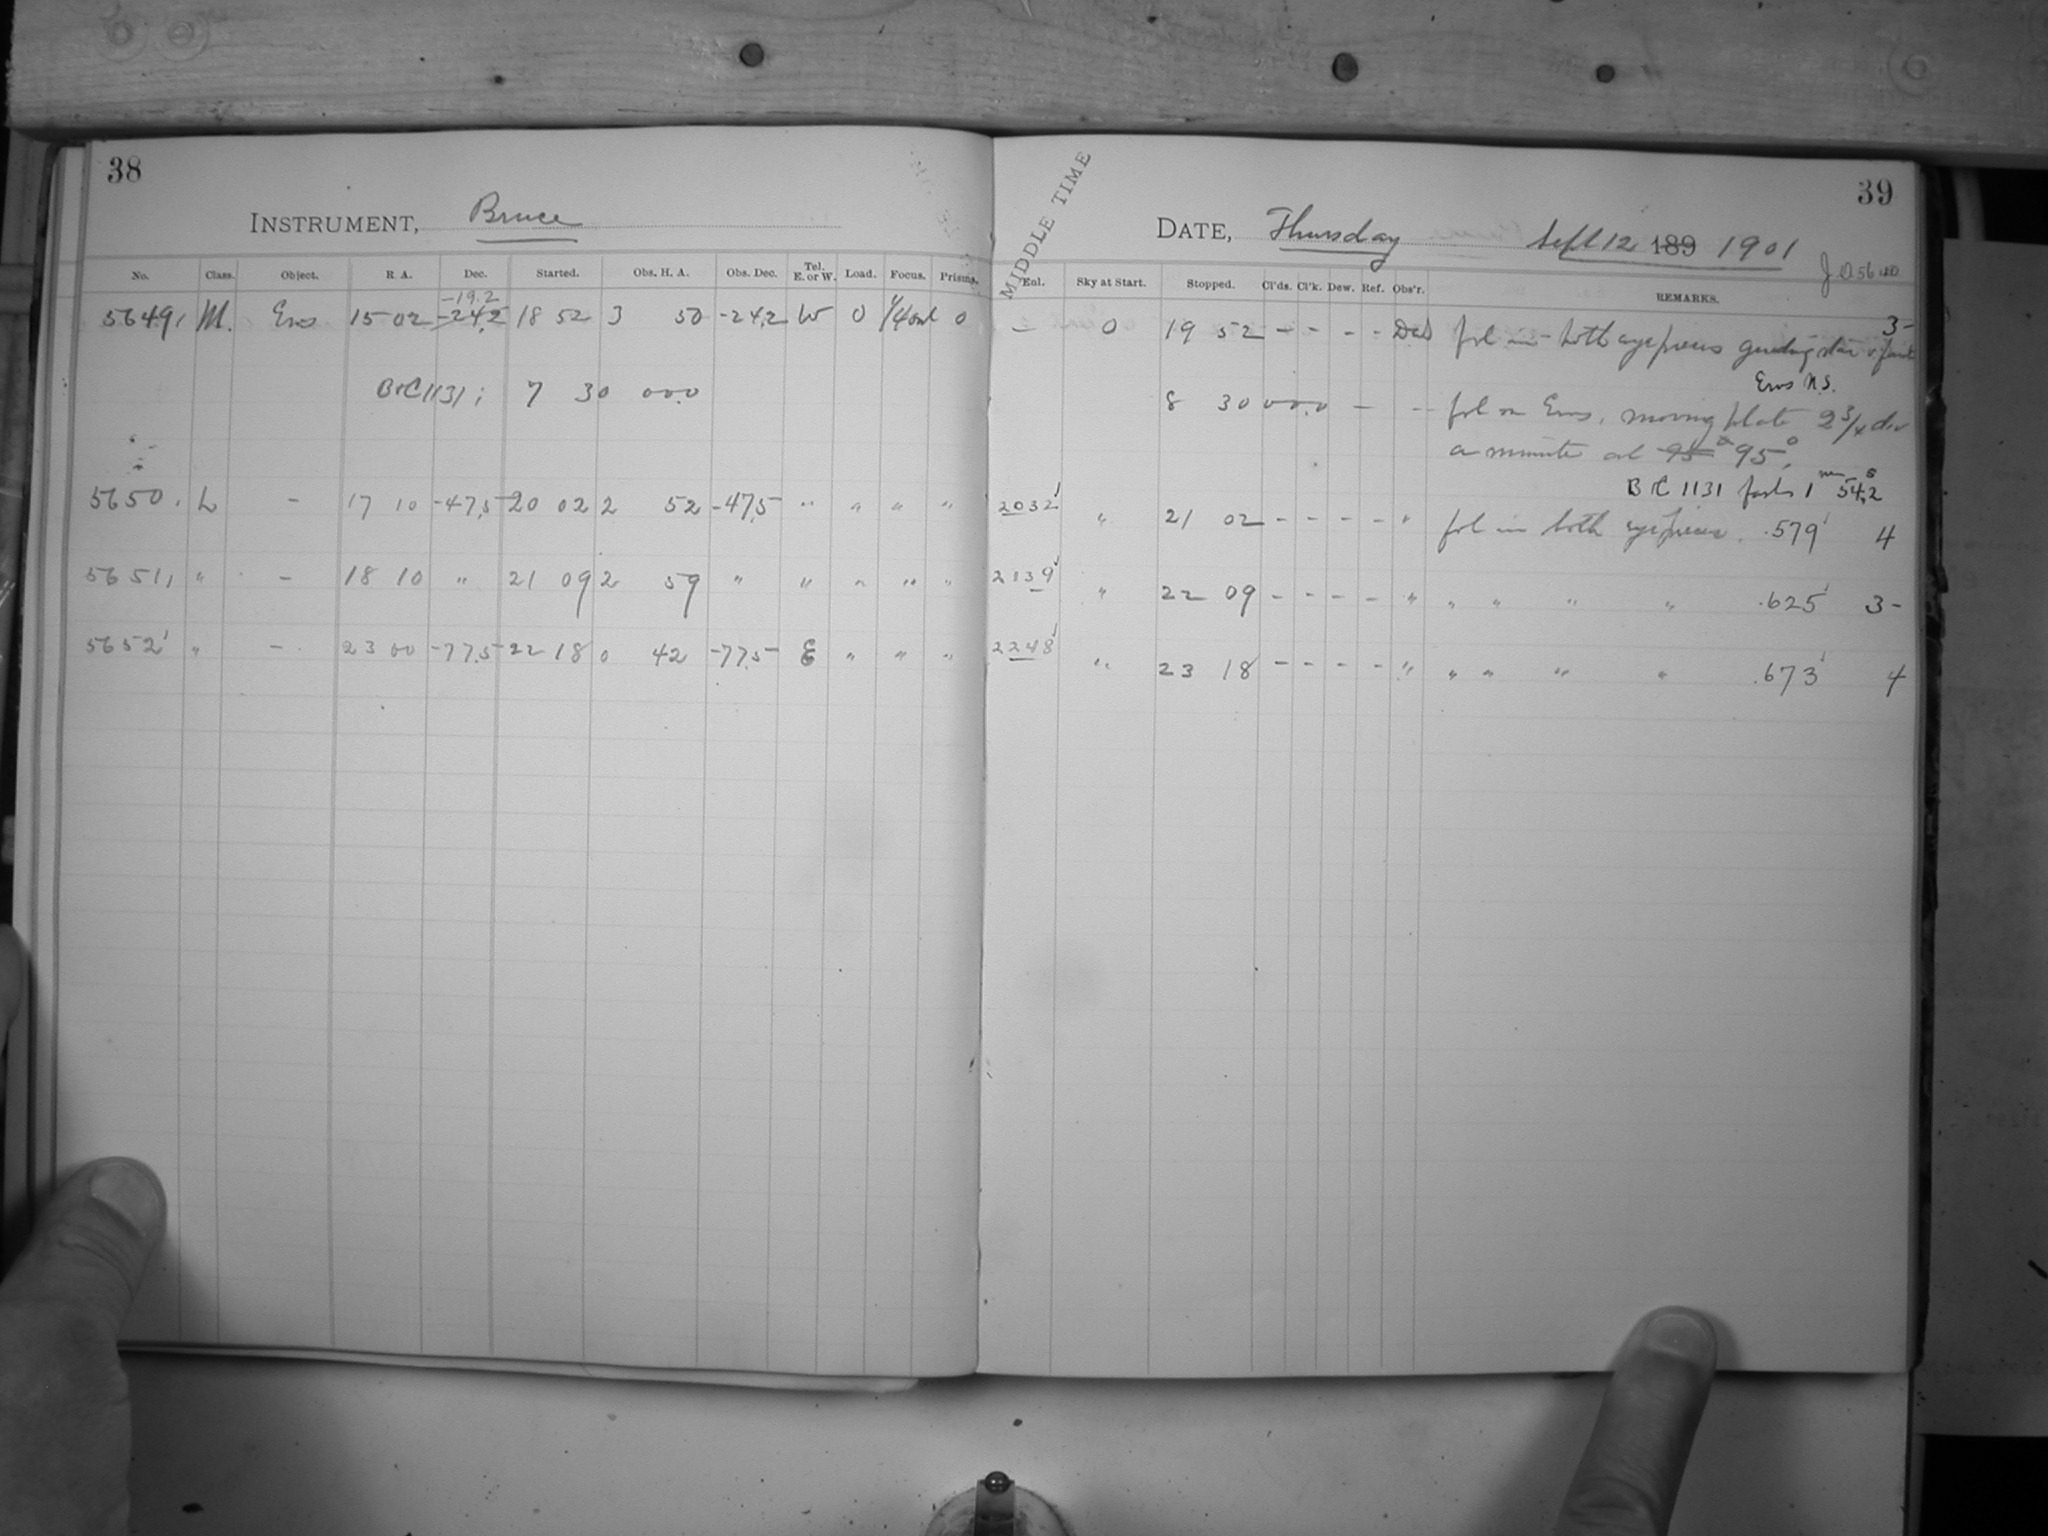 38
INSTRUMENT, Bruce
No. Class. Object. R. A. Dec. Started. Obs. H. A. Obs. Dec. Tel. E. or W. Load. Focus. Prisms.
-19.2
5649, M. Eros 15 02 -24,2 18 52 3 50 -24,2 W 0 0
1131; 7 30 00.0
5650, L - 17 10 -47,5 20 02 2 52 -47,5 " " " "
5651, " - 18 10 " 21 09 2 59 " " " " "
5652 " - 23 00 -77,5 22 18 0 42 -77,5 E " " "
39
MIDDLE TIME
DATE, Thursday Sept 12 189 1901
Enl. Sky at Start. Stopped. Cl'ds. Cl'k. Dew. Ref. Obs'r. REMARKS.
3-
- 0 19 52 - - - - fol in both eyepieces guiding star
Eros N.S.
8 30 00.0 - - fol on Eros, moving plate 2 3/4 div
a minute at 95 95°,
1131 fast 1m 54,2s
2032 " 21 02 - - - - " fol in both eyepieces. .579 4
2139 " 22 09 - - - - " " " " " .625 3-
2248 " 23 18 - - - - " " " " " .673 4